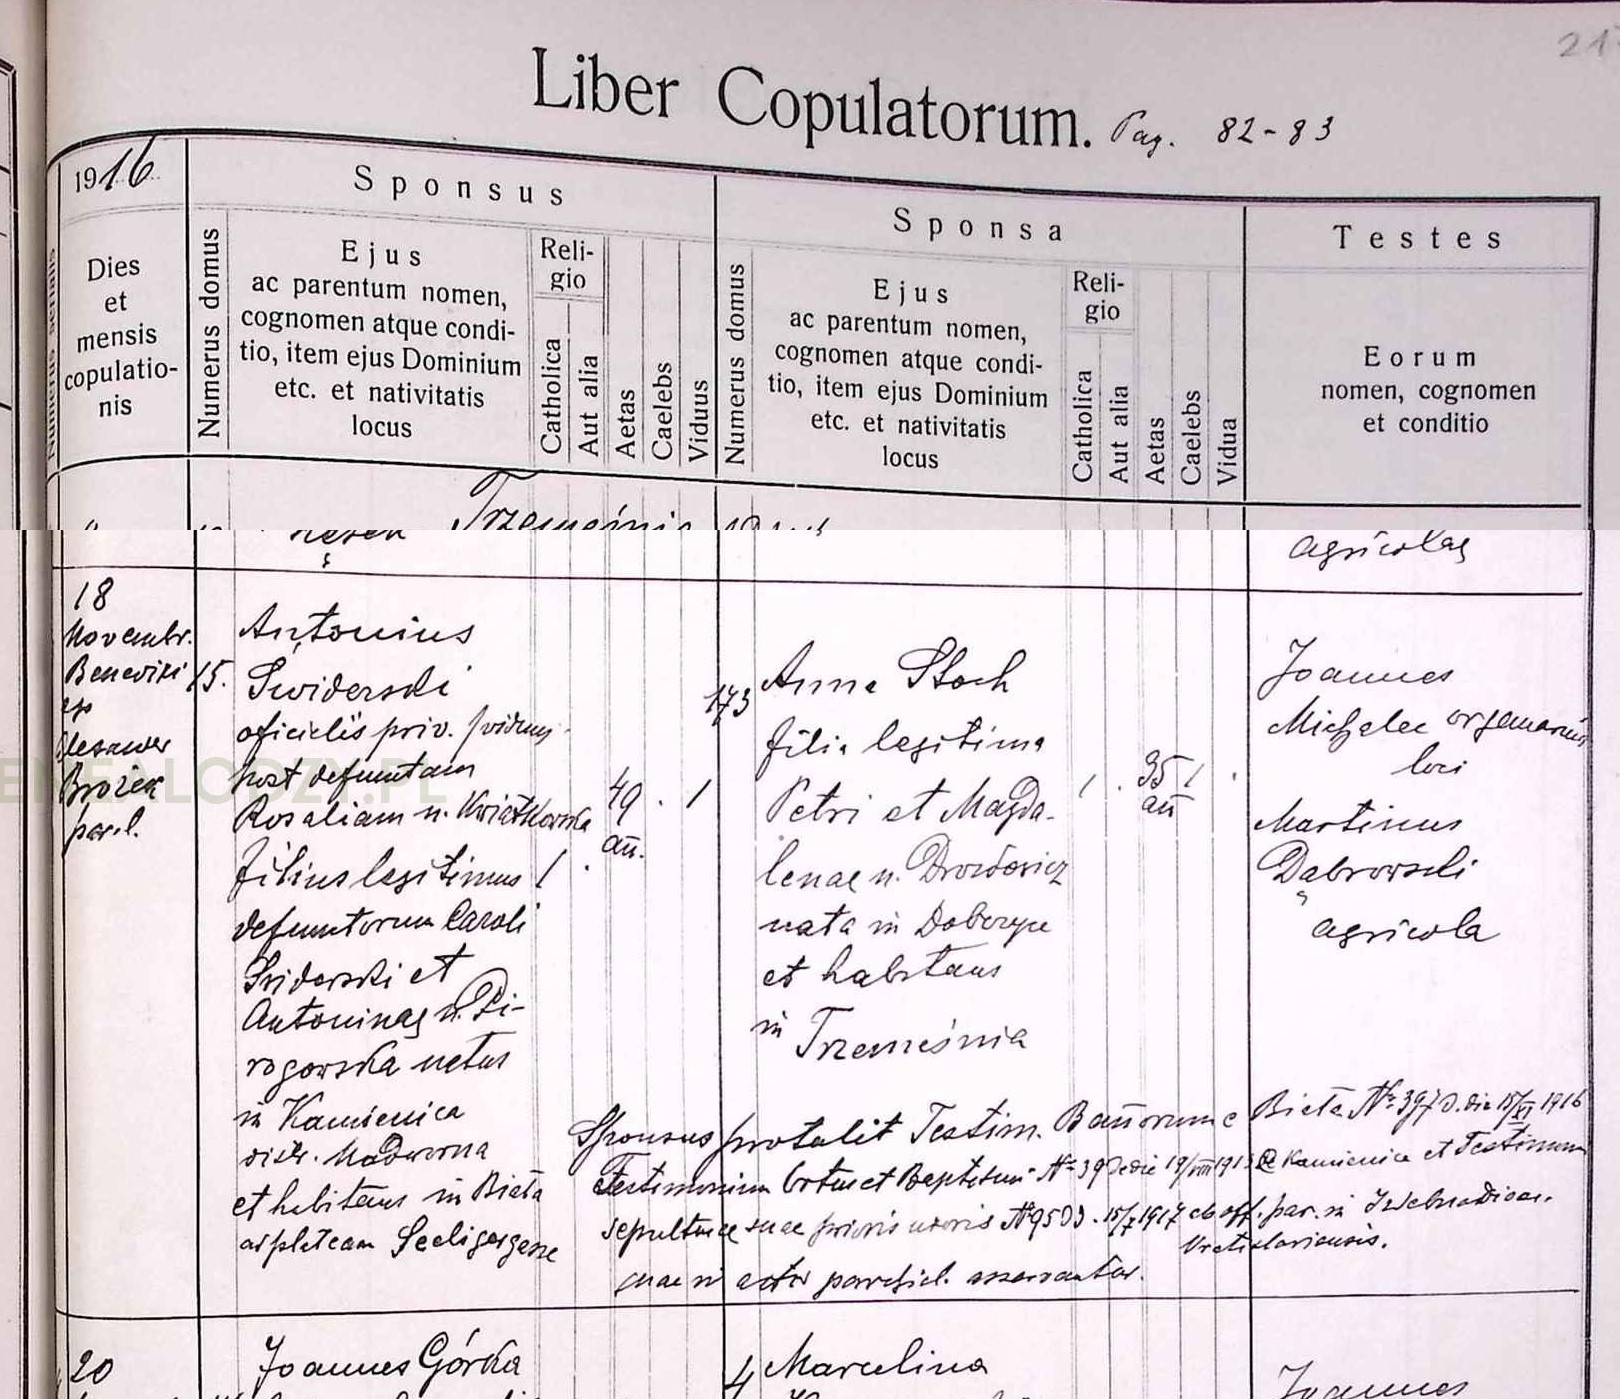 Liber Copulatorum. Pag. 82-83
1916
Sponsus
Sponsa
Testes
Numerus serialis
Dies
et
mensis
copulatio-
nis
Numerus domus
Ejus
ac parentum nomen,
cognomen atque condi-
tio, item ejus Dominium
etc. et nativitatis
locus
Reli-
gio
Catholica
Aut alia
Aetas
Caelebs
Viduus
Numerus domus
Ejus
ac parentum nomen,
cognomen atque condi-
tio, item ejus Dominium
etc. et nativitatis
locus
Reli-
gio
Catholica
Aut alia
Aetas
Caelebs
Vidua
Eorum
nomen, cognomen
et conditio
Trzemeśnia
agricolae
18
Novembr.
Brożek
par.l.
15.
Antonius
Swiderski
oficialis priv.
post defunctam
Rosaliam n. Kwiatkowska
filius legitimus
defunctorum Caroli
Swiderski et
Antoninae n. Pi-
rogowska natus
in Kamienica
distr. Nadworna
et habitans in Biała
ad plateam Seeligergasse
1 .
49
an.
. 1
173
Anna Stoch
filia legitima
Petri et Magda-
lenae n. Drozdowicz
nata in
et habitans
in Trzemeśnia
1 .
35
an
1 .
Joannes
Michalec organarius
loci
Martinus
Dąbrowski
agricola
Sponsus protulit Testim. Bannorum e Biała Nr 397 D. die 15/XI 1916
Testimonium Ortus et Baptismi Nr 39 de die e Kamienica et Testimonium
sepulturae suae prioris uxoris Nr 95 ab off. par. in
Vratislaviensis.
quae in actis parochial. asservantur.
20
Joannes Górka
4
Marcelina
Joannes